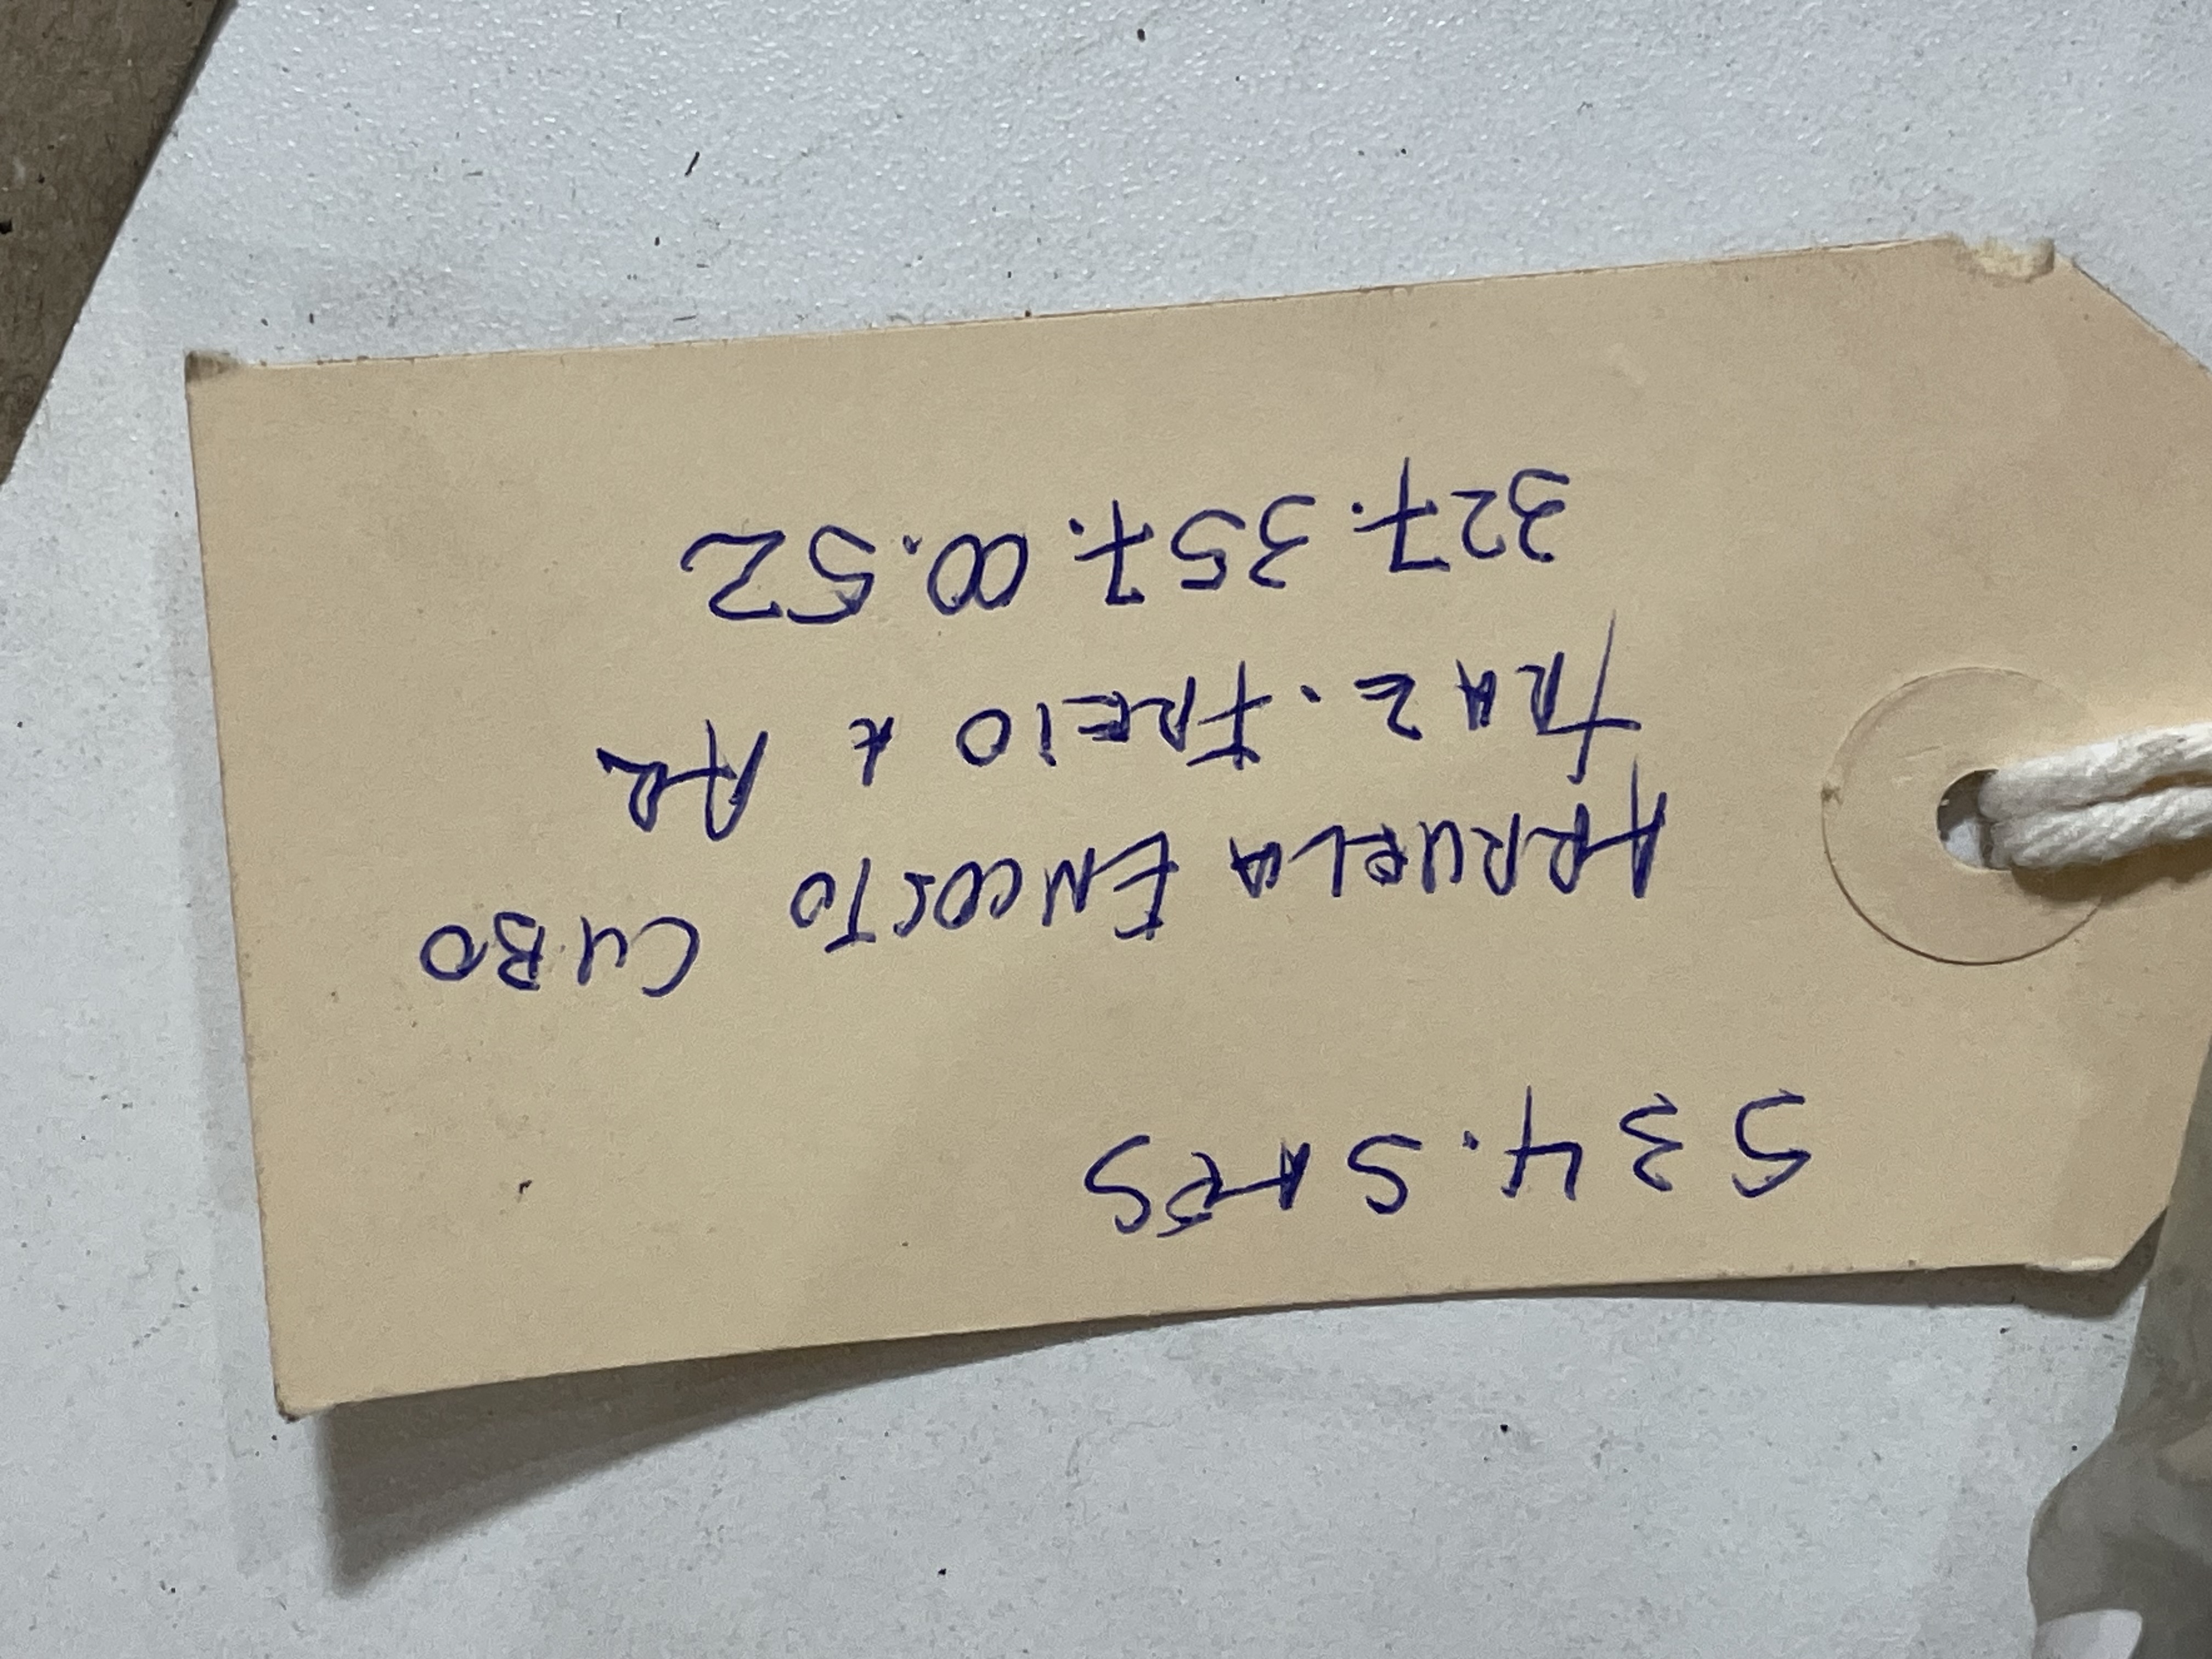 534.SAPS
ARRUELA ENCOSTO CUBO
TRAZ. FREIO A AR
327.357.00.52